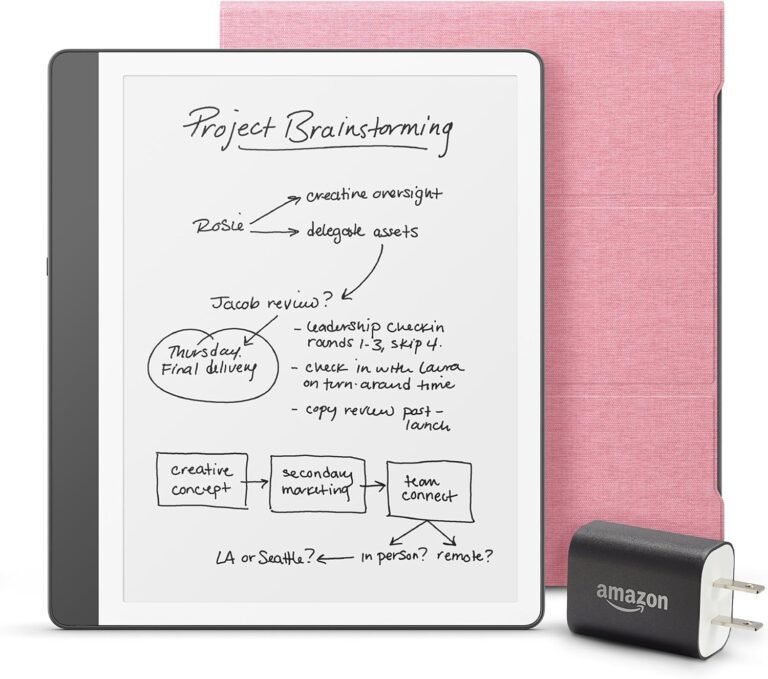 Project Brainstorming
creative oversight
Rosie
delegate assets
Jacob review?
Thursday.
Final delivery
- leadership checkin
rounds 1-3, skip 4.
- check in with Laura
on turn-around time
- copy review post-
launch
creative
concept
secondary
marketing
team
connect
LA or Seattle?
in person?
remote?
amazon